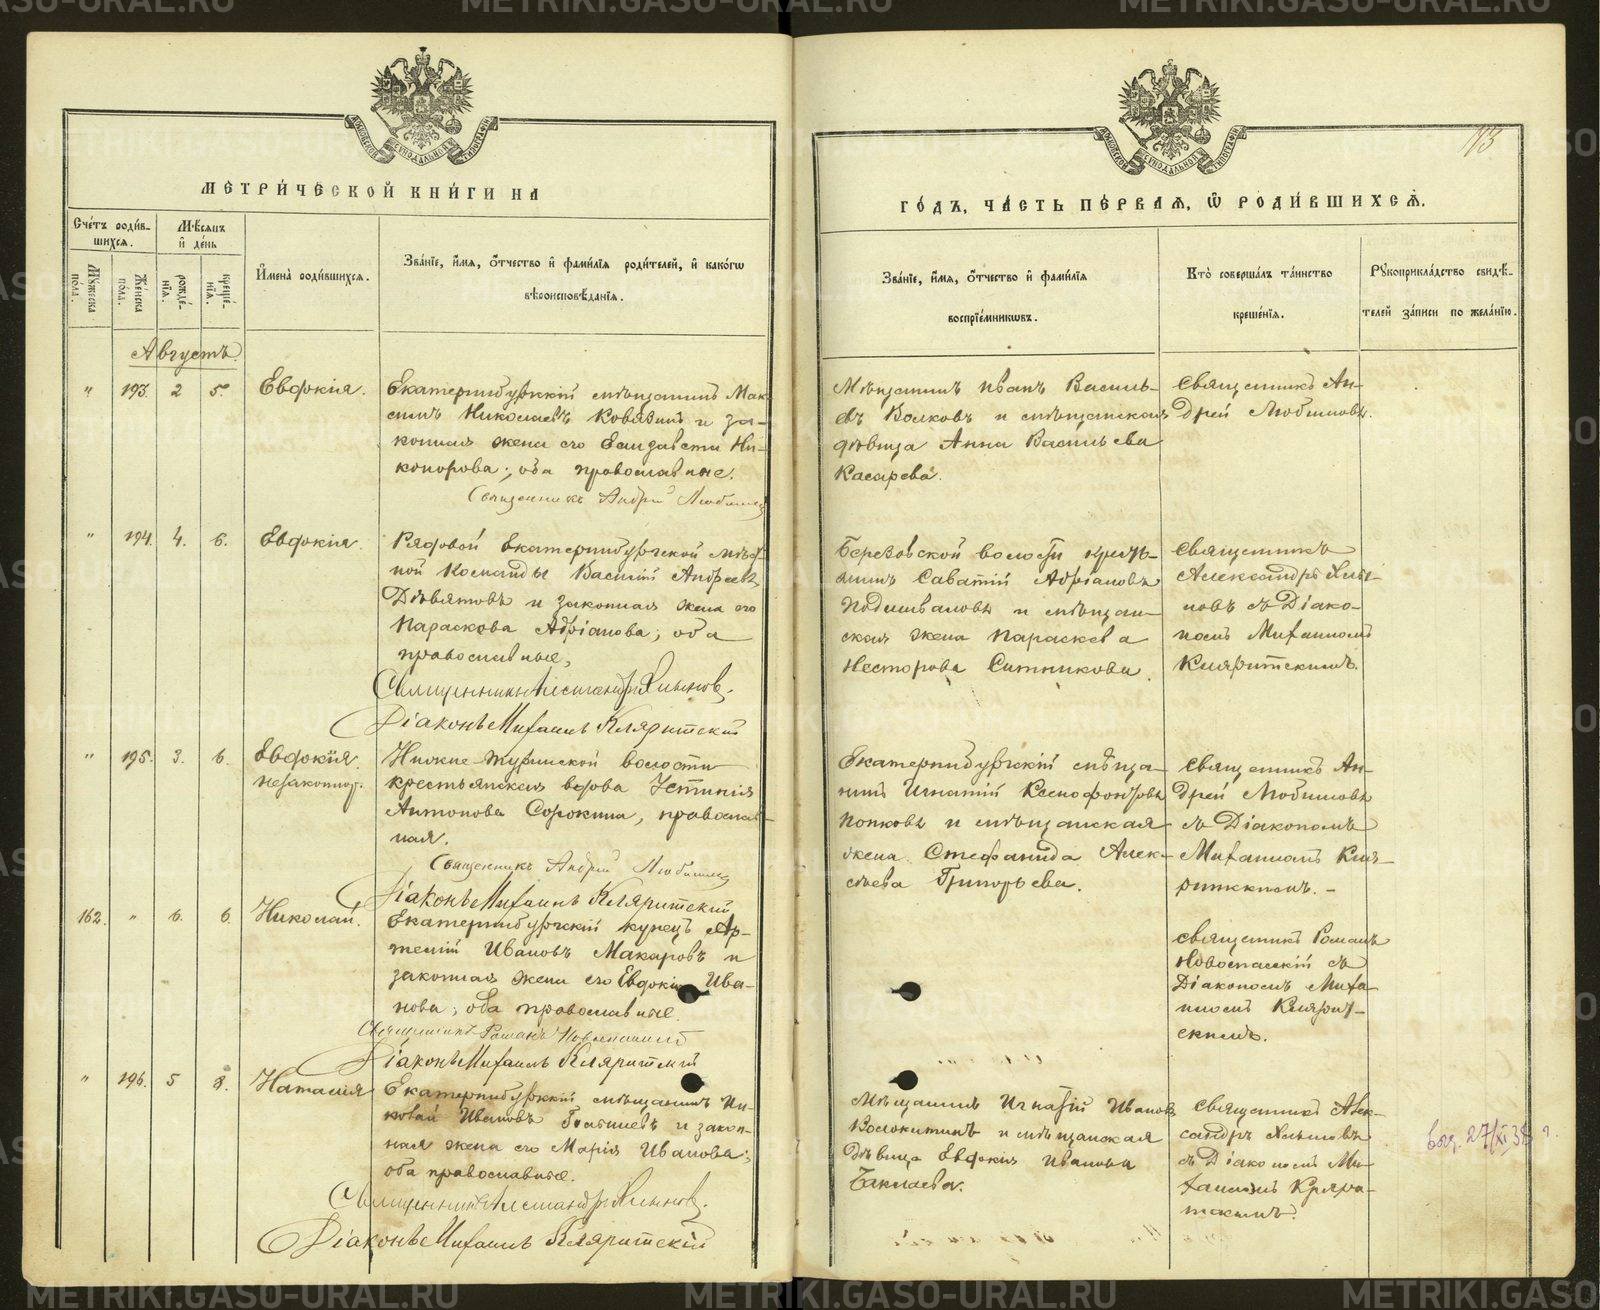 METRIKI.GASO-URAL.RU
МЕТРИ́ЧЕСКОЙ КНИ́ГИ НА
ГО́ДЪ, ЧА́СТЬ ПЕ́РВАЯ, Ѿ РОДИ́ВШИХСЯ.
Сче́тъ роди́в-
шихся.
Мѣ́сяцъ
и́ де́нь
Му́жеска
по́ла.
Же́нска
по́ла.
рожде́-
нїя.
креще́-
нїя.
И҆мена̀ роди́вшихся.
Зва́нїе, и҆́мя, ѻ҆́тчество и҆ фами́лїя роди́телей, и҆ како́гѡ
вѣроисповѣ́данїя.
Зва́нїе, и҆́мя, ѻ҆́тчество и҆ фами́лїя
воспрїе́мникѡвъ.
Кто̀ соверша́лъ та́инство
креще́нїя.
Рꙋкоприкла́дство свидѣ́-
телей за́писи по жела́нїю.
Августъ.
" 193. 2 5. Евдокія.
Екатеринбургскій мѣщанинъ Мак-
симъ Николаевъ Ковязинъ и за-
конная жена его Елизавета Ни-
конорова; оба православные.
Священникъ Андрей Любимов
Мѣщанинъ Иванъ Василь-
евъ Волковъ и мѣщанская
дѣвица Анна Васильева
Касарева.
Священникъ Ан-
дрей Любимовъ.
" 194. 4. 6. Евдокія.
Рядовой Екатеринбургской мѣст-
ной Команды Василій Андреевъ
Дѣвятовъ и законная жена его
Параскова Адріанова; оба
православные,
Священникъ Александръ Хлыновъ.
Діаконъ Михаилъ Кляритскій
Березовской волости кресть-
янинъ Саватій Адріановъ
Подшиваловъ и мѣщан-
ская жена Параскева
Несторова Ситникова.
Священникъ
Александръ Хлы-
новъ съ Діако-
номъ Михаиломъ
Кляритскимъ.
" 195. 3. 6. Евдокія.
незаконнор.
Нижне-Туринской волости
крестьянская вдова Устинія
Антонова Сорокина, православ-
ная.
Священникъ Андрей Любимов
Діаконъ Михаилъ Кляритскій
Екатеринбургскій мѣща-
нинъ Игнатій Ксенофонтовъ
Попковъ и мѣщанская
жена Стефанида Алек-
сѣева Григорьева.
Священникъ Ан-
дрей Любимовъ
съ Діакономъ
Михаиломъ Кля-
ритскимъ. -
162. " 6. 6. Николай.
Екатеринбургскій купецъ Ар-
темій Ивановъ Макаровъ и
законная жена его Евдокія Ива-
нова; оба православные.
Священникъ Романъ Новоспасскій
Діаконъ Михаилъ Кляритскій
Священникъ Романъ
Новоспасскій съ
Діакономъ Миха-
иломъ Клярит-
скимъ.
" 196. 5 8. Наталія
Екатеринбургскій мѣщанинъ Ни-
колай Ивановъ и закон-
ная жена его Марія Иванова;
оба православные.
Священникъ Александръ Хлыновъ.
Діаконъ Михаилъ Кляритскій
Мѣщанинъ Игнатій Ивановъ
Волокитинъ и мѣщанская
Дѣвица Евдокія Иванова
Баклаева.
Священникъ Алек-
сандръ Хлыновъ
съ Діакономъ Ми-
хаиломъ Кляри-
тскимъ.
27/XI 38 г.